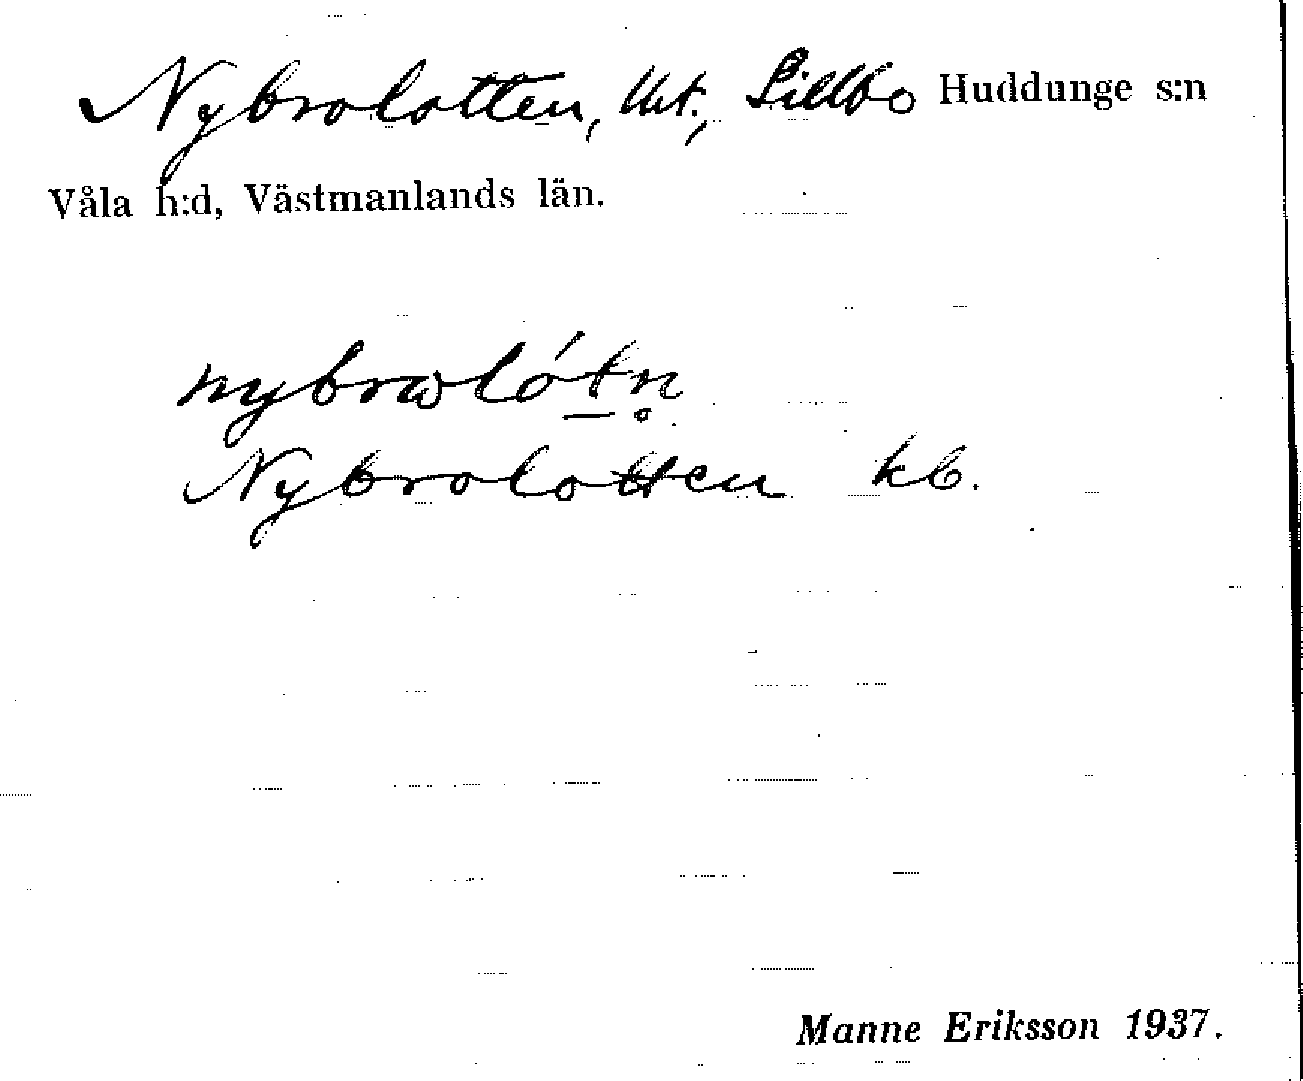 Nybrolotten, Utt., Sillbo Huddunge s:n
Våla h:d, Västmanlands län.
nybrωló̱tn̥
Nybrolotten kb.
Manne Eriksson 1937.